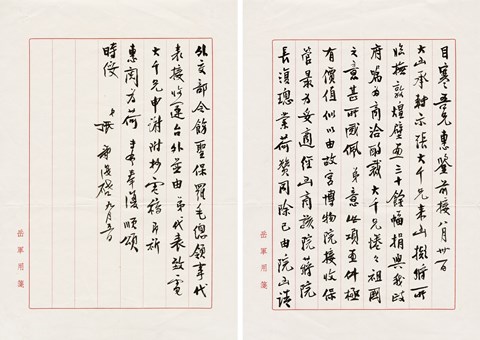 目寒吾兄惠鑒前接八月卅一日
大函承轉示張大千兄來函擬將所
臨撫敦煌壁畫十餘幅捐與我政
府囑為商洽酌裁大千兄惓々祖國
之意甚所感佩弟意此項畫件極
有價值似以由故宮博物院接收保
管最為妥適經函商該院蔣院
長復璁業荷贊同除已由院函請
岳軍用箋
外交部令飭聖保羅毛總領事代
表接收運台外並由弟代表致電
大千兄申謝附抄電稿即祈
惠閱為荷專此奉復順頌
時綏
弟張羣復啓九月日
岳軍用箋